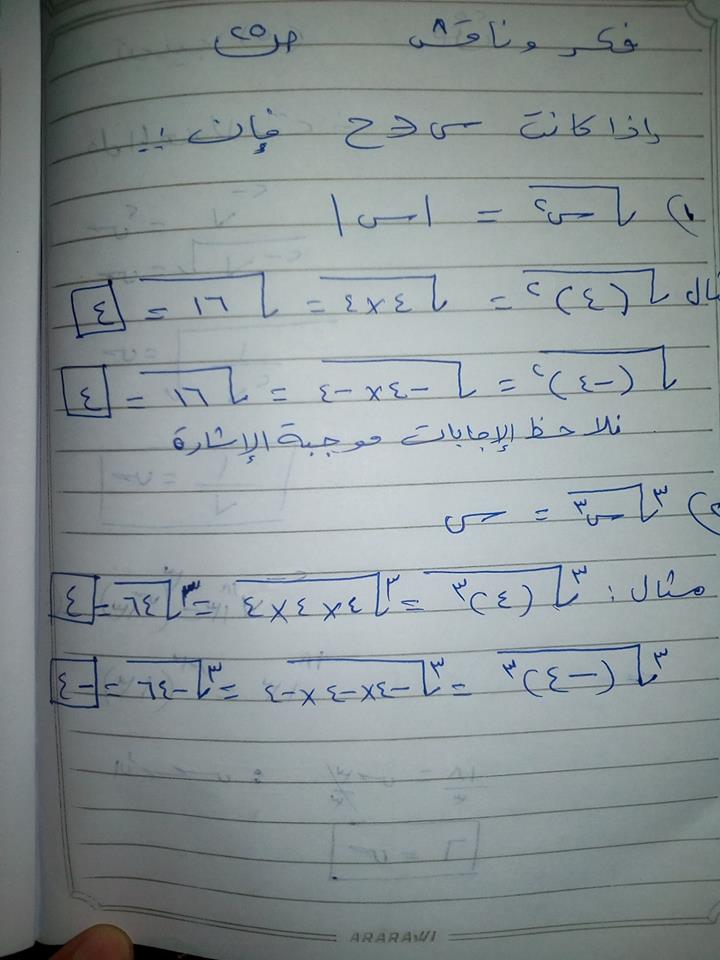 فكر وناقش ص ٢٥
إذا كانت س ∈ ح فإن :
١) √س² = |س|
مثال √(٤)² = √٤×٤ = √١٦ = ٤
√(-٤)² = √-٤×-٤ = √١٦ = ٤
نلاحظ الإجابات موجبة الإشارة
٢) ∛س³ = س
مثال : ∛(٤)³ = ∛٤×٤×٤ = ∛٦٤ = ٤
∛(-٤)³ = ∛-٤×-٤×-٤ = ∛-٦٤ = -٤
ARARAWI